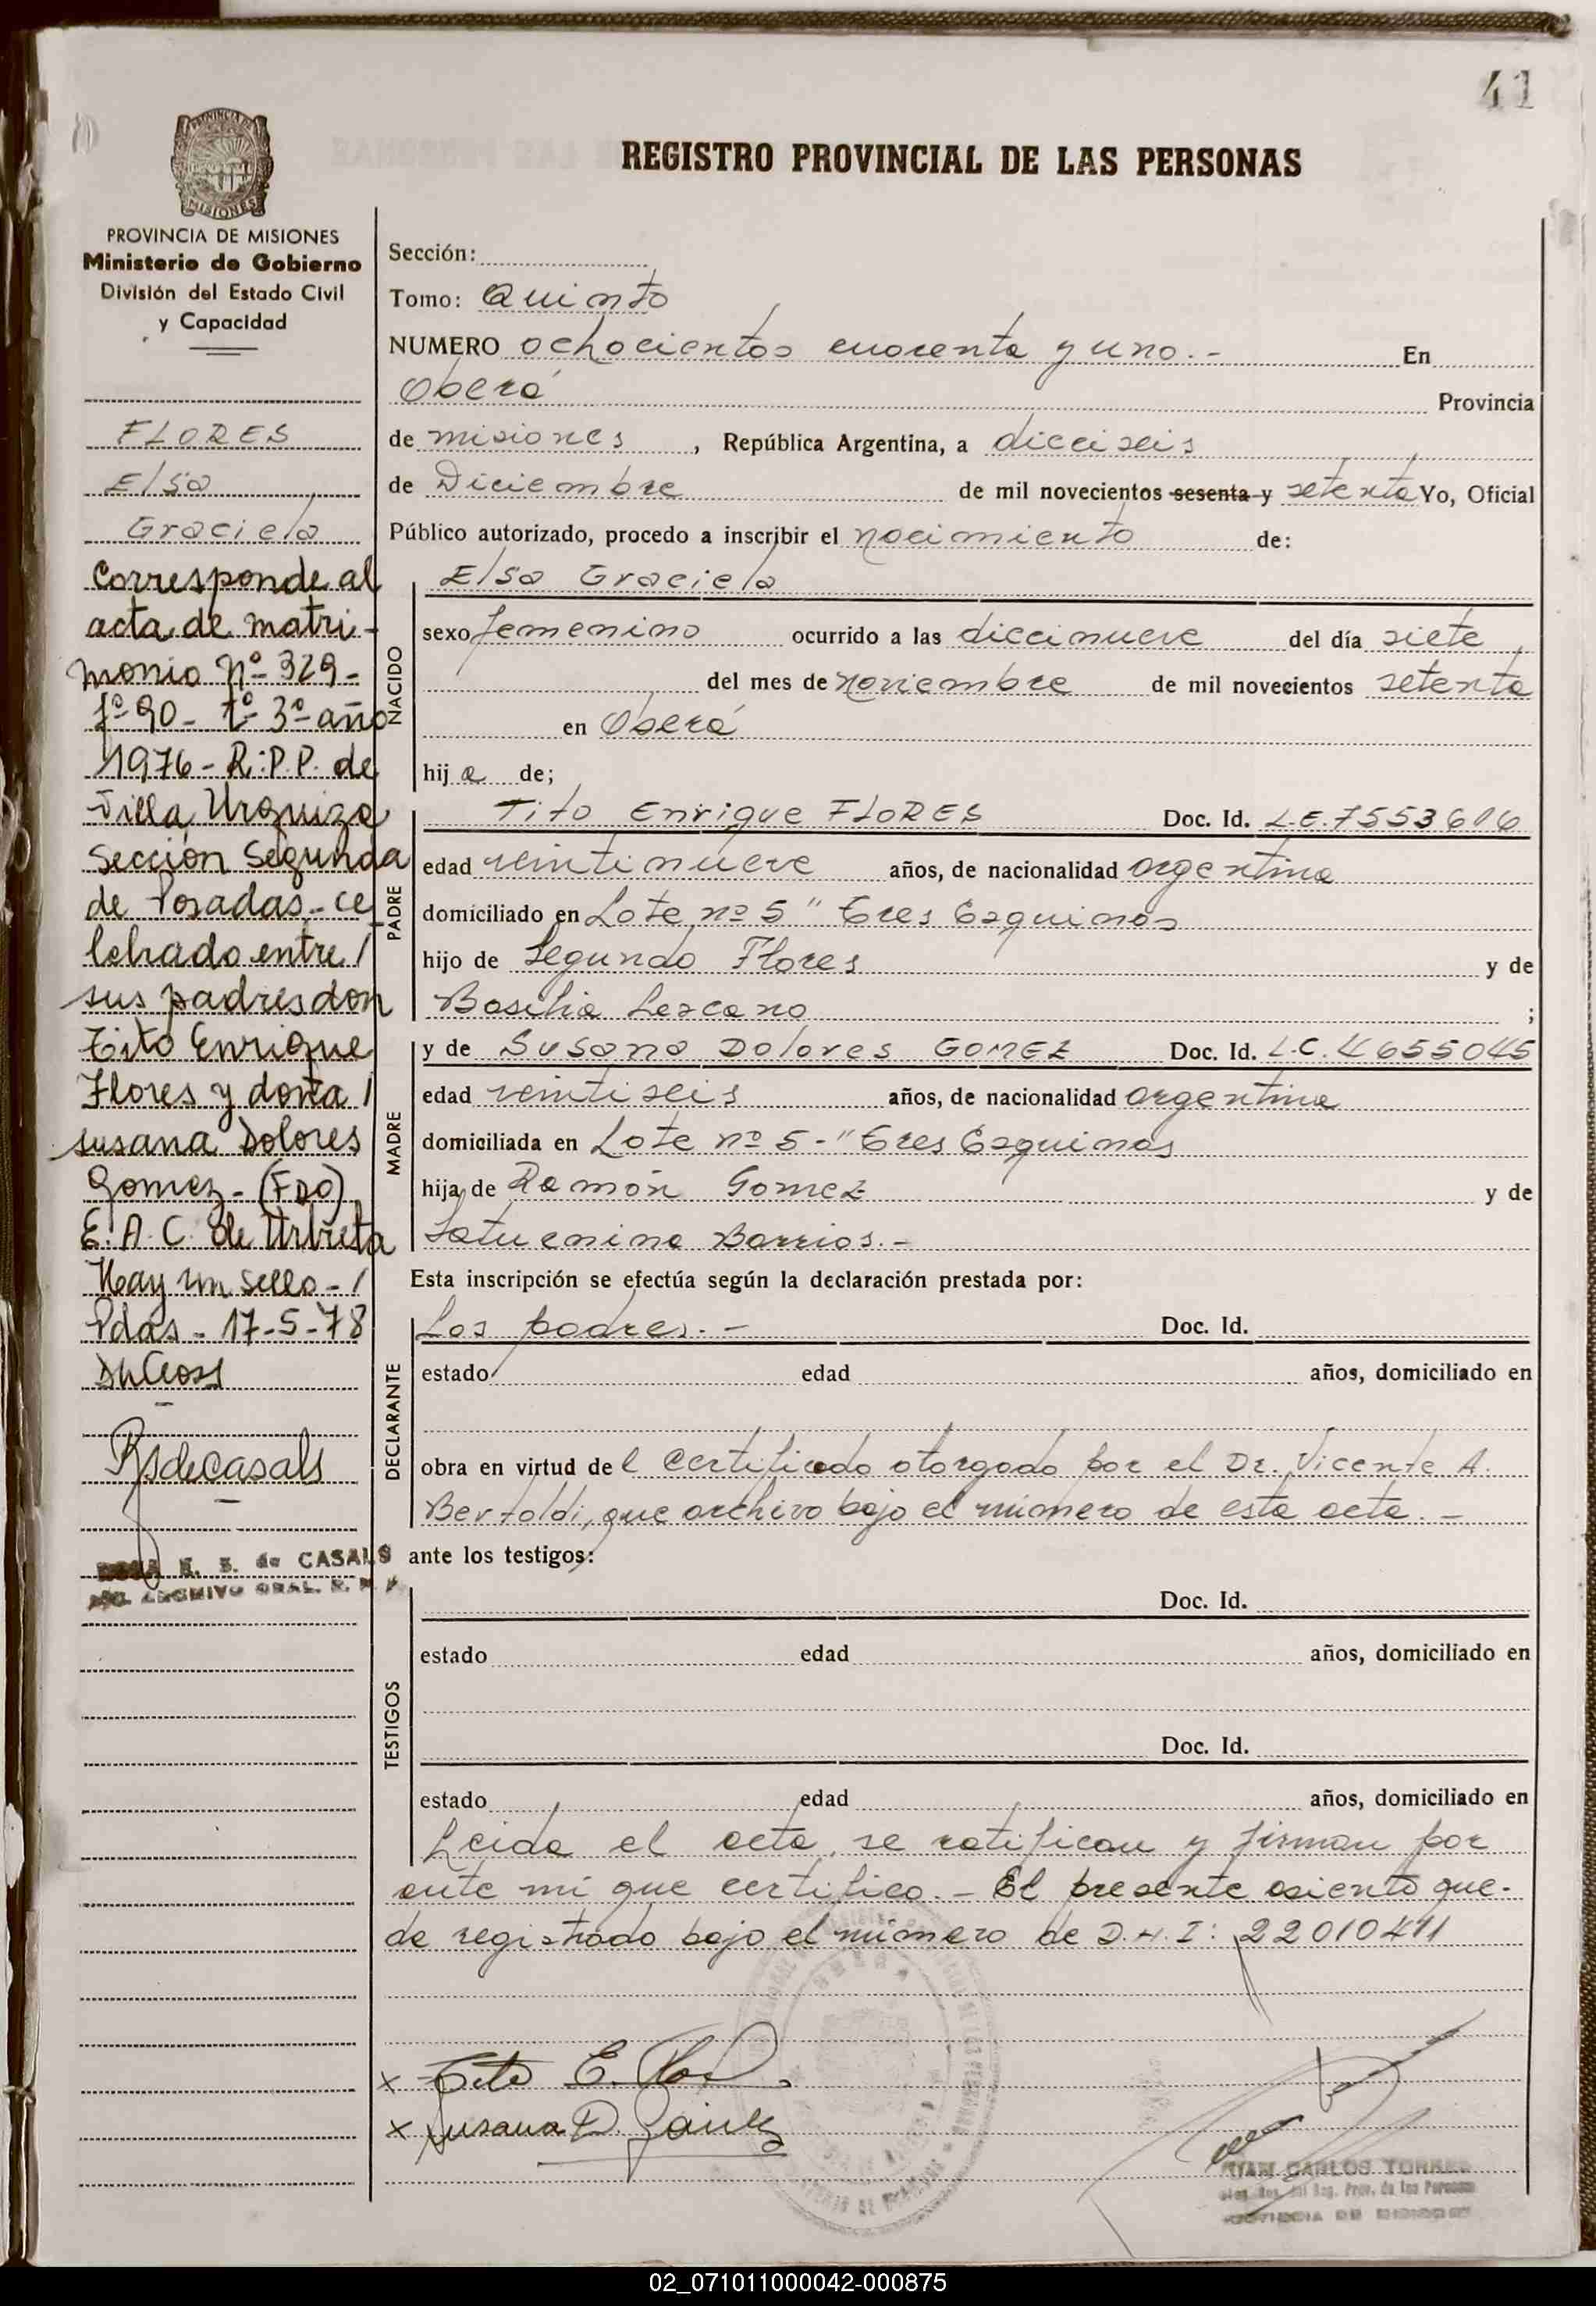 41
REGISTRO PROVINCIAL DE LAS PERSONAS
PROVINCIA DE MISIONES
Ministerio de Gobierno
División del Estado Civil
y Capacidad
FLORES
Elsa
Graciela
Corresponde al
acta de matri-
monio Nº 329-
fº 90- tº 3º año
1976- R.P.P. de
Villa Urquiza
Sección Segunda
de Posadas,- ce
lebrado entre/
sus padres don
Tito Enrique
Flores y doña/
Susana Dolores
Gomez- (FDO)
E. A. C. de Urbieta
Hay un sello-/
Pdas- 17-5-78
RSdeCasals
E. S. de CASALS
ARCHIVO GRAL. R. P. P.
Sección:
Tomo: Quinto
NUMERO ochocientos cuarenta y uno.- En
Oberá Provincia
de misiones, República Argentina, a dieciseis
de Diciembre de mil novecientos sesenta y setenta Yo, Oficial
Público autorizado, procedo a inscribir el nacimiento de:
NACIDO
Elsa Graciela
sexo femenino ocurrido a las diecinueve del día siete
del mes de noviembre de mil novecientos setenta
en Oberá
hija de;
PADRE
Tito Enrique FLORES Doc. Id. L.E.7553616
edad veintinueve años, de nacionalidad argentina
domiciliado en Lote nº 5 "Tres Esquinas
hijo de Segundo Flores y de
Basilia Lezcano ;
MADRE
y de Susana Dolores GOMEZ Doc. Id. L.C. 4655045
edad veintiseis años, de nacionalidad argentina
domiciliada en Lote nº 5-"Tres Esquinas
hija de Ramón Gomez y de
Saturnina Barrios.-
Esta inscripción se efectúa según la declaración prestada por:
DECLARANTE
Los padres.- Doc. Id.
estado edad años, domiciliado en
obra en virtud del certificado otorgado por el Dr. Vicente A.
Bertoldi, que archivo bajo el número de esta acta.-
ante los testigos:
TESTIGOS
Doc. Id.
estado edad años, domiciliado en
Doc. Id.
estado edad años, domiciliado en
Leida el acta, se ratifican y firman por
ante mí que certifico.- El presente asiento que-
da registrado bajo el número de D.N.I: 22010411
x Tito E. Flores
x Susana D. Gómez
JUAN CARLOS TORRES
del Reg. Prov. de las Personas
PROVINCIA DE MISIONES
02_071011000042-000875